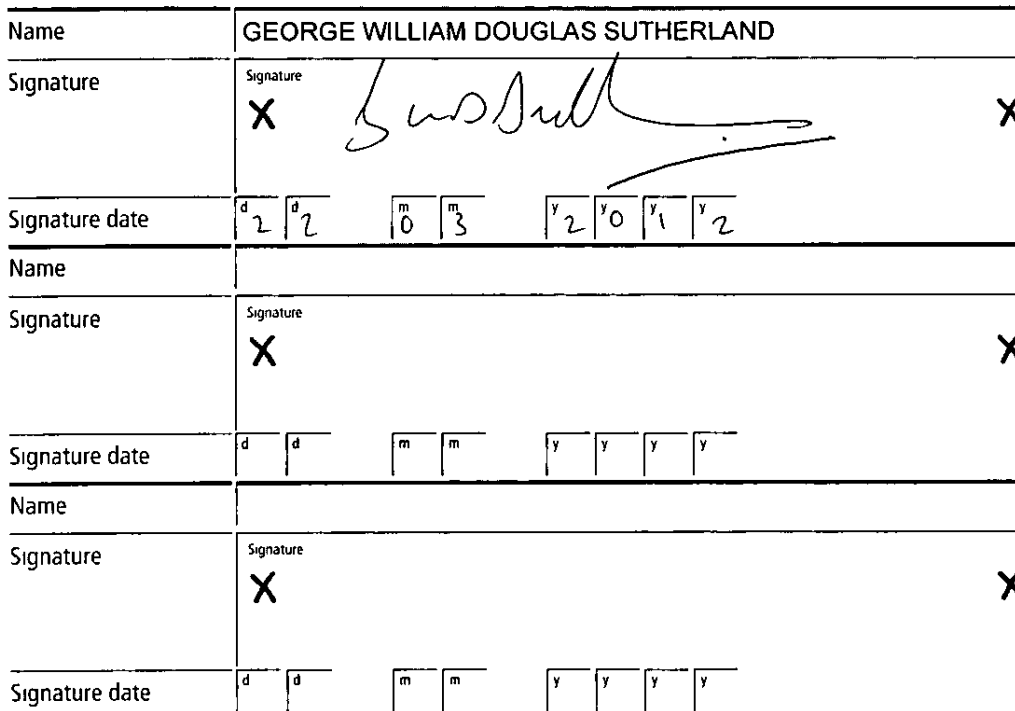 Name GEORGE WILLIAM DOUGLAS SUTHERLAND
Signature Signature
X X
Signature date d2 d2 m0 m3 y2 y0 y1 y2
Name
Signature Signature
X X
Signature date d d m m y y y y
Name
Signature Signature
X X
Signature date d d m m y y y y